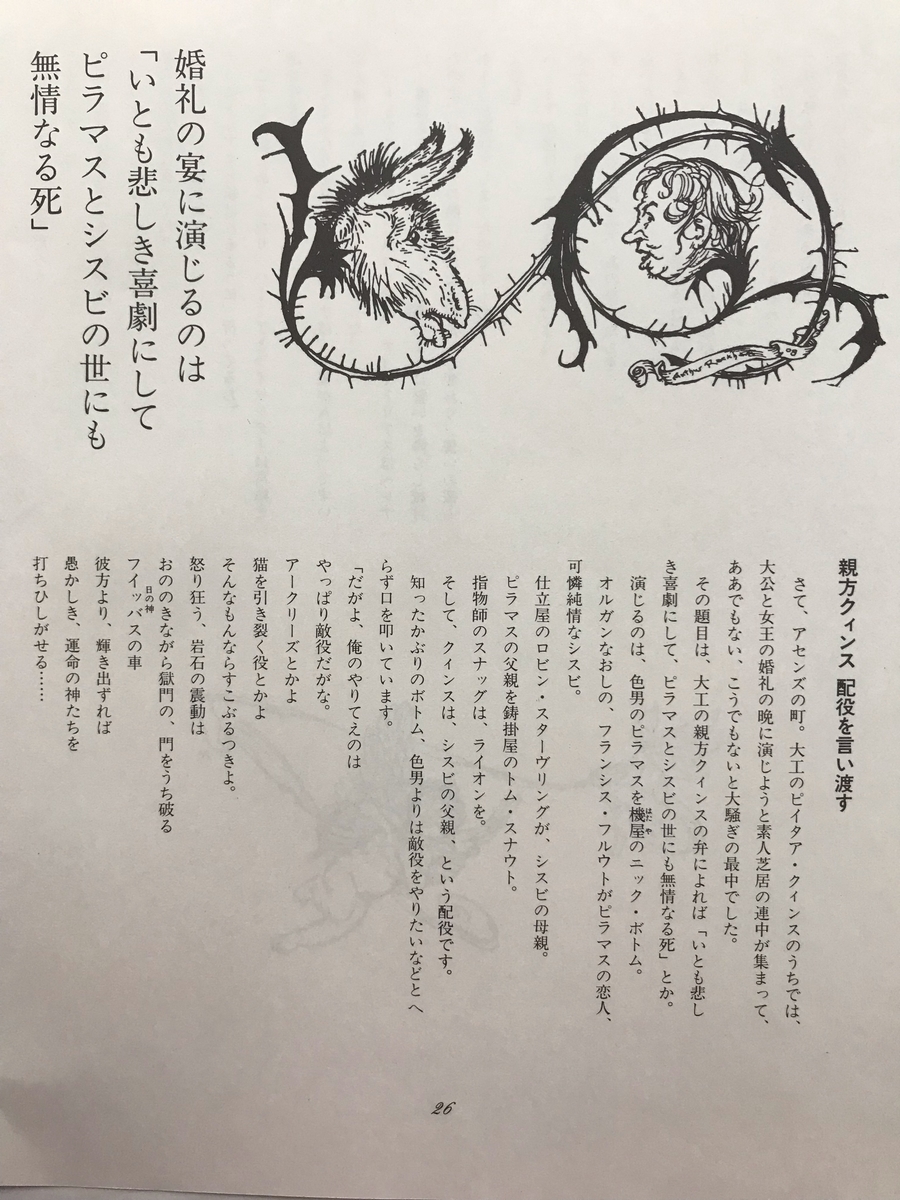 婚礼の宴に演じるのは
「いとも悲しき喜劇にして
ピラマスとシスビの世にも
無情なる死」
Arthur Rackham
08
親方クィンス 配役を言い渡す
さて、アセンズの町。大工のピイタア・クィンスのうちでは、
大公と女王の婚礼の晩に演じようと素人芝居の連中が集まって、
ああでもない、こうでもないと大騒ぎの最中でした。
その題目は、大工の親方クィンスの弁によれば「いとも悲し
き喜劇にして、ピラマスとシスビの世にも無情なる死」とか。
演じるのは、色男のピラマスを機屋のニック・ボトム。
はたや
オルガンなおしの、フランシス・フルウトがピラマスの恋人、
可憐純情なシスビ。
仕立屋のロビン・スターヴリングが、シスビの母親。
ピラマスの父親を鋳掛屋のトム・スナウト。
指物師のスナッグは、ライオンを。
そして、クィンスは、シスビの父親、という配役です。
知ったかぶりのボトム、色男よりは敵役をやりたいなどとへ
らず口を叩いています。
「だがよ、俺のやりてえのは
やっぱり敵役だがな。
アークリーズとかよ
猫を引き裂く役とかよ
そんなもんならすこぶるつきよ。
怒り狂う、岩石の震動は
おののきながら獄門の、門をうち破る
日の神
フイッバスの車
彼方より、輝き出ずれば
愚かしき、運命の神たちを
打ちひしがせる……
26